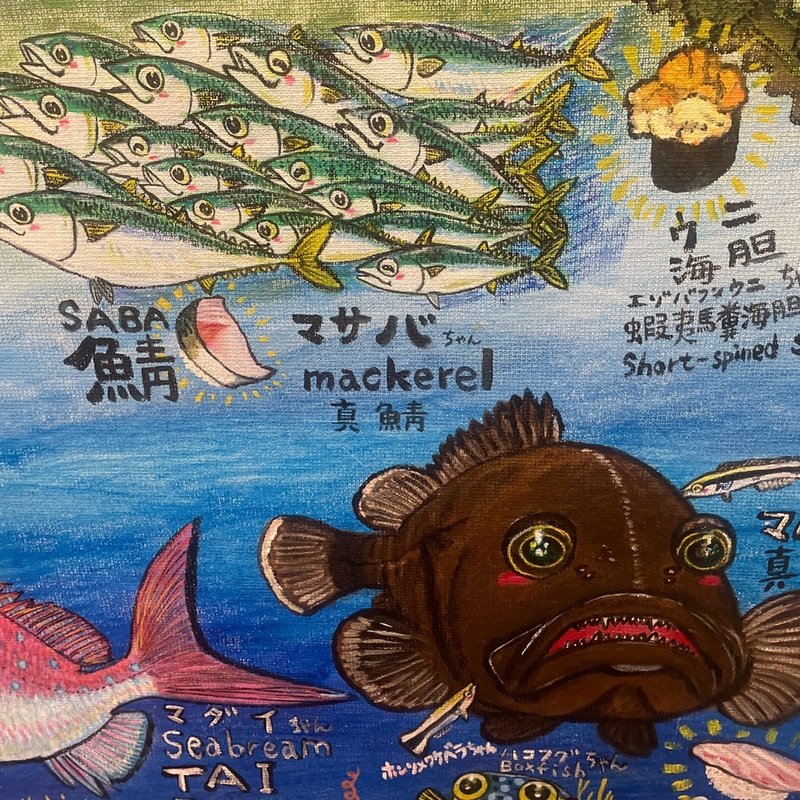 ウニ
海胆
エゾバフンウニ
蝦夷馬糞海胆
Short-spined
SABA
鯖
マサバちゃん
mackerel
真鯖
真
マダイちゃん
Seabream
TAI
ホンソメワケベラちゃん
ハコフグちゃん
Boxfish